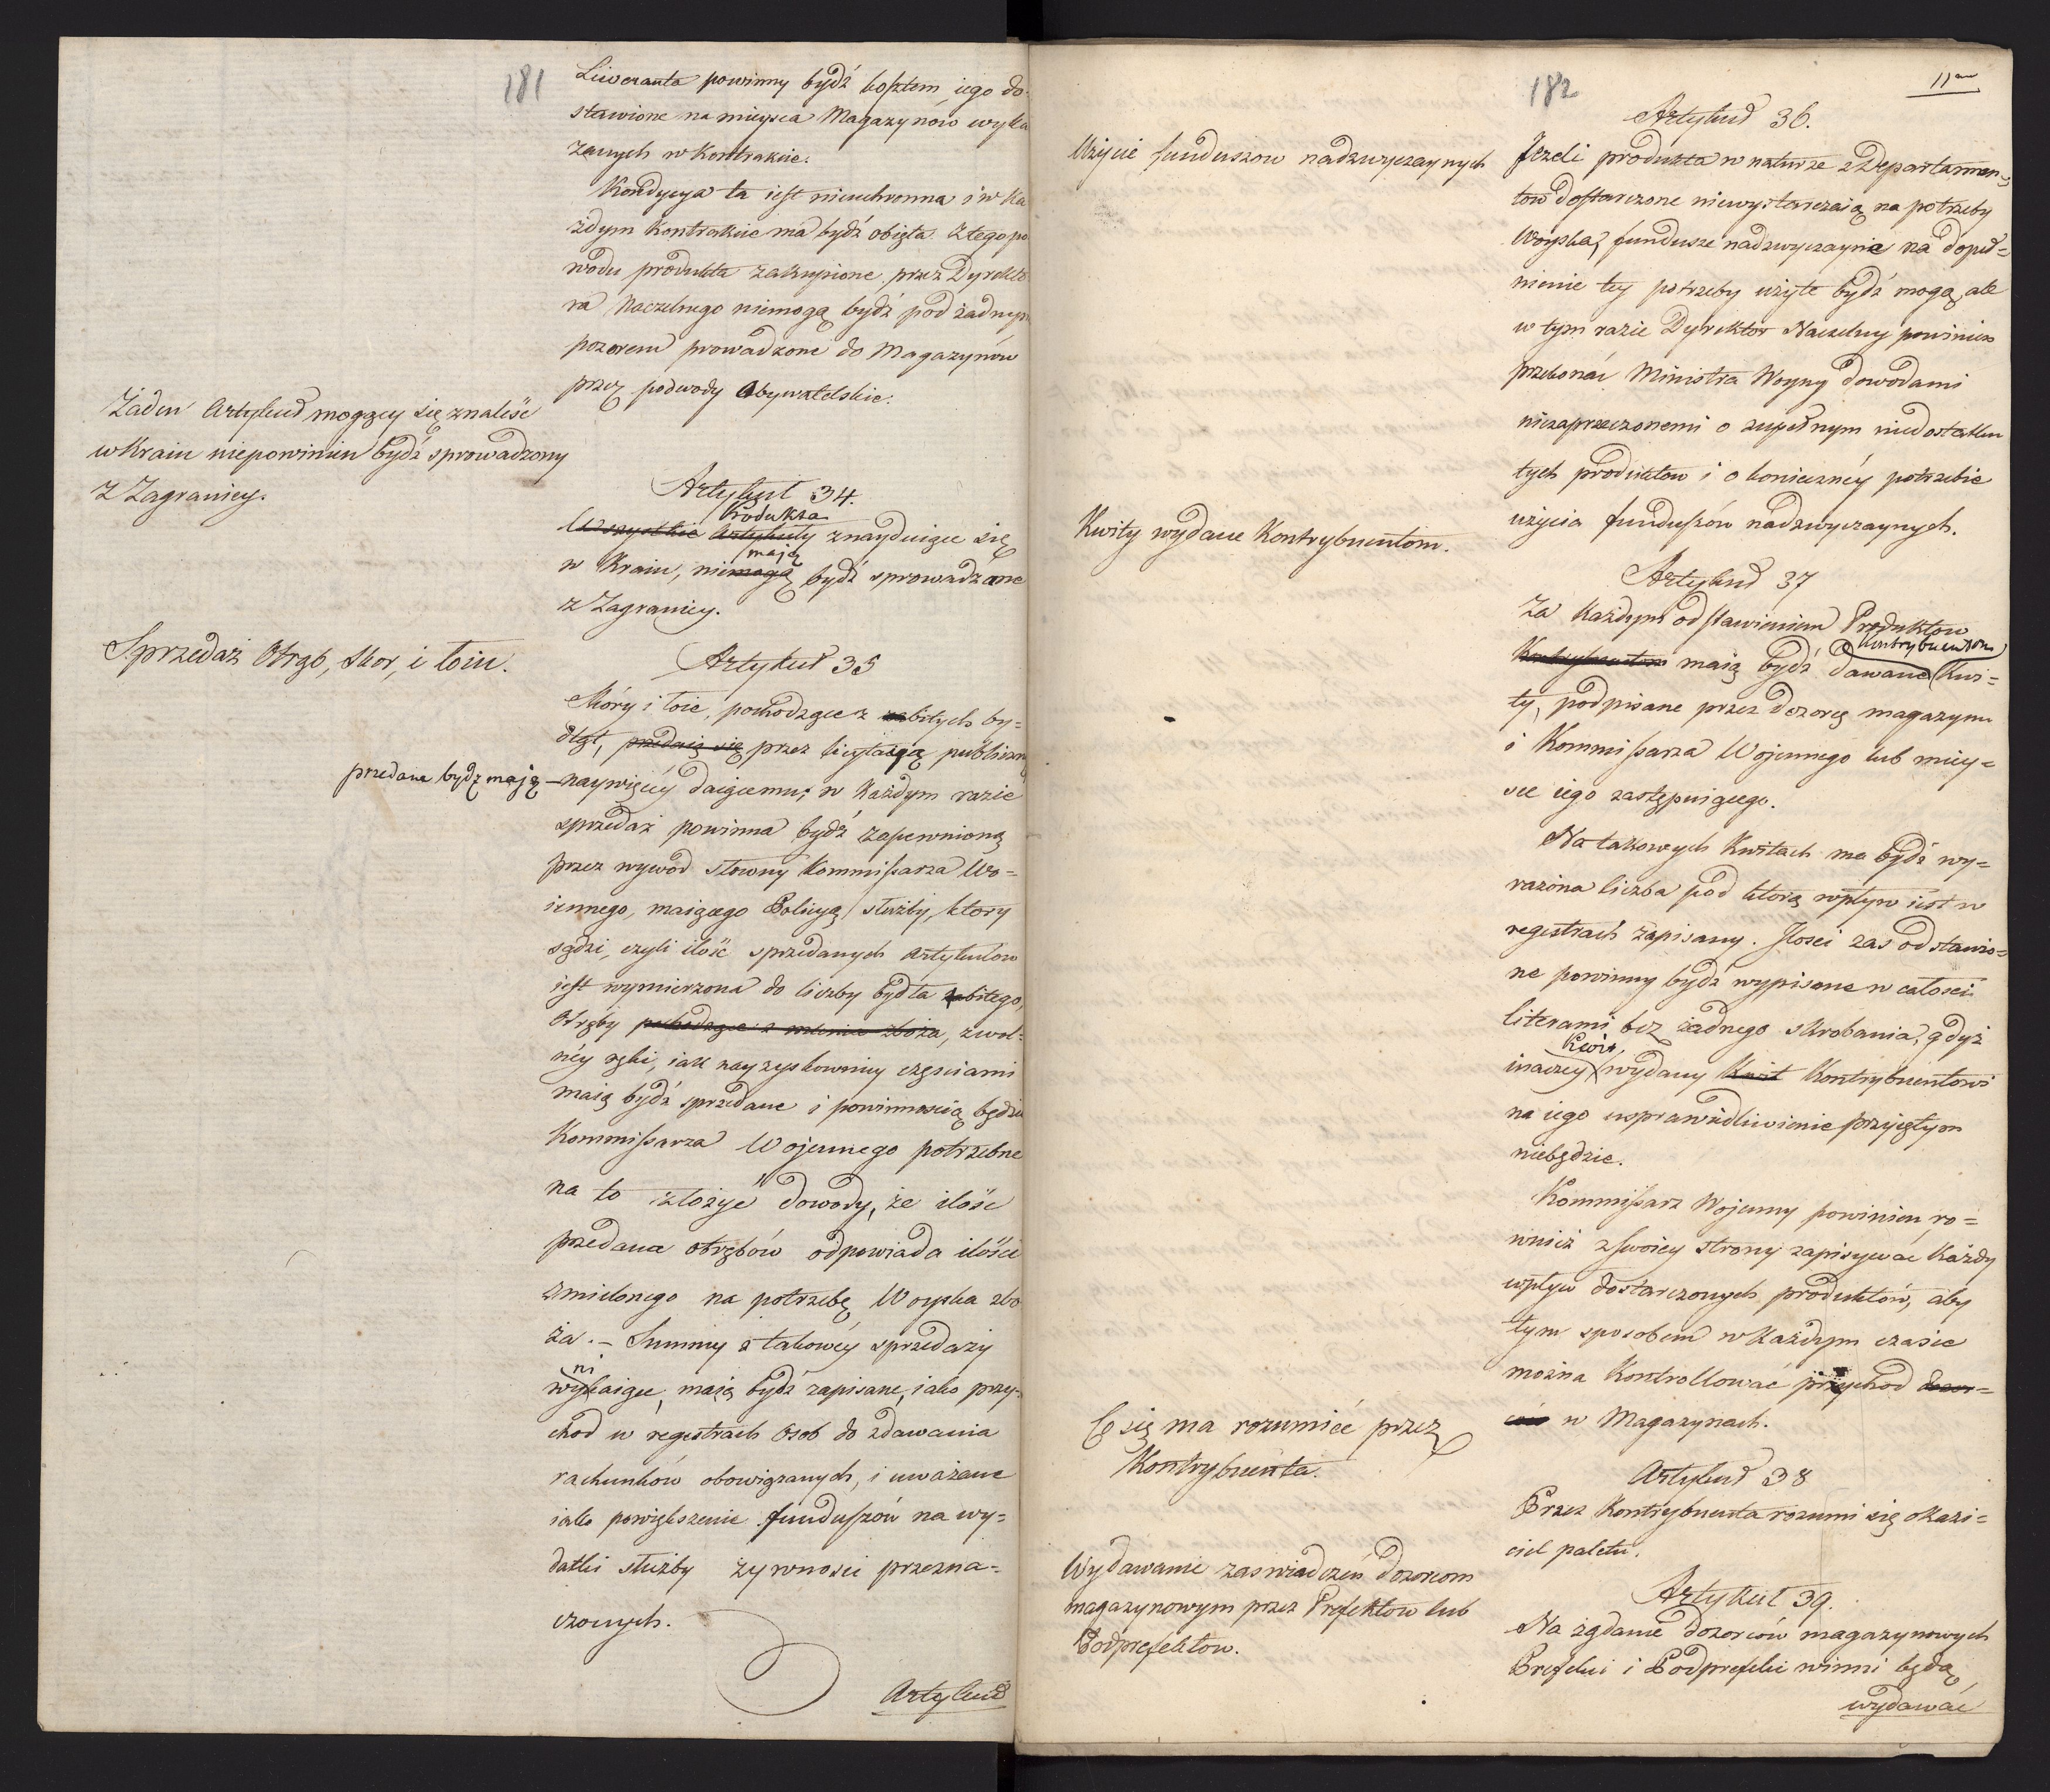 181
Liweranta powinny bydź kosztem iego do-
stawione na mieysca Magazynów wyka
zanych w Kontrakcie.
Kondycya ta iest nieuchronna i w Ka
żdym Kontrakcie ma bydź obięta. Z tego po
wodu produkta zakupione przez Dyrekto
ra Naczelnego niemogą bydź pod żadnym
pozorem prowadzone do Magazynów
przez podwody Obywatelskie.
Żaden Artykuł mogący się znaleść
w Kraiu niepowinien bydź sprowadzony
z Zagranicy.
Artykuł 34.
Produkta
Wszystkie Artykuły znayduiące się
maią
w Kraiu, niemogą bydź sprowadzone
z Zagranicy.
Sprzedaż Otrąb, Skor, i łoiu.
Artykuł 35
Skóry i łoie, pochodzące z zabitych by=
dląt, przedaią się przez licytacyą publiczną
przedane bydz mają – naywięcéy daiącemu; w Każdym razie
sprzedaż powinna bydź zapewnioną
przez wywod słowny Kommissarza Wo=
iennego, maiącego Policyą służby, ktory
sądzi, czyli ilość sprzedanych Artykułow
iest wymierzona do liczby bydła zabitego,
Otręby pochodzące z mlenia zboża, z wol=
néy ręki, iak nayzyskowniey częściami
maią bydź sprzedane i powinnością będzie
Kommissarza Wojennego potrzebne
na to złożyć dowody, że ilość
przedana otrębów odpowiada ilości
zmielonego na potrzebę Woyska zbo
ża. – Summy z takowéy sprzedaży
ni
wykaiące, maią bydź zapisane, iako przy=
chod w regestrach Osob do zdawania
rachunków obowiązanych, i uważane
iako powiększenie funduszów na wy=
datki służby żywnosci przezna=
czonych.
Artykuł
182
11
Artykuł 36.
Użycie funduszow nadzwyczaynych
Jeżeli produkta w naturze z Departamen=
tow dostarczone niewystarczaią na potrzeby
Woyska, fundusze nadzwyczayne na dopeł=
nienie tey potrzeby użyte bydź mogą, ale
w tym razie Dyrektor Naczelny powinien
przekonać Ministra Woyny dowodami
niezaprzeczonemi o zupełnym niedostatku
tych produktow i o konieczney potrzebie
użycia funduszów nadzwyczaynych.
Kwity wydane Kontrybuentom.
Artykuł 37
Za Każdym odstawieniem Produktow
Kontrybuentom
Kontrybuentom maią bydź dawane Kwi=
ty, podpisane przez dozorcę magazynu
i Kommissarza Wojennego lub miey=
sce iego zastępuiącego.
Na takowych Kwitach ma bydź wy=
rażona liczba pod ktorą wpływ iest w
regestrach zapisany. Jlosci zas odstawio=
ne powinny bydź wypisane w całosci
literami bez żadnego skrobania, gdyż
Kwit,
inaczey wydany Kwit Kontrybuentowi
na iego usprawiedliwienie przyiętym
niebędzie.
Kommissarz Wojenny powinien ro=
wnież z swoiey strony zapisywać Każdy
wpływ dostarczonych produktów, aby
tym sposobem w Każdym czasie
można Kontrollować przychod
w Magazynach.
Co się ma rozumieć przez
Kontrybuenta.
Artykuł 38
Przez Kontrybuenta rozumi się okazi=
ciel paletu.
Wydawanie zaswiadczeń dozorcom
magazynowym przez Prefektow lub
Podprefektow.
Artykuł 39.
Na żądanie dozorców magazynowych
Prefekci i Podprefekci winni będą
wydawać